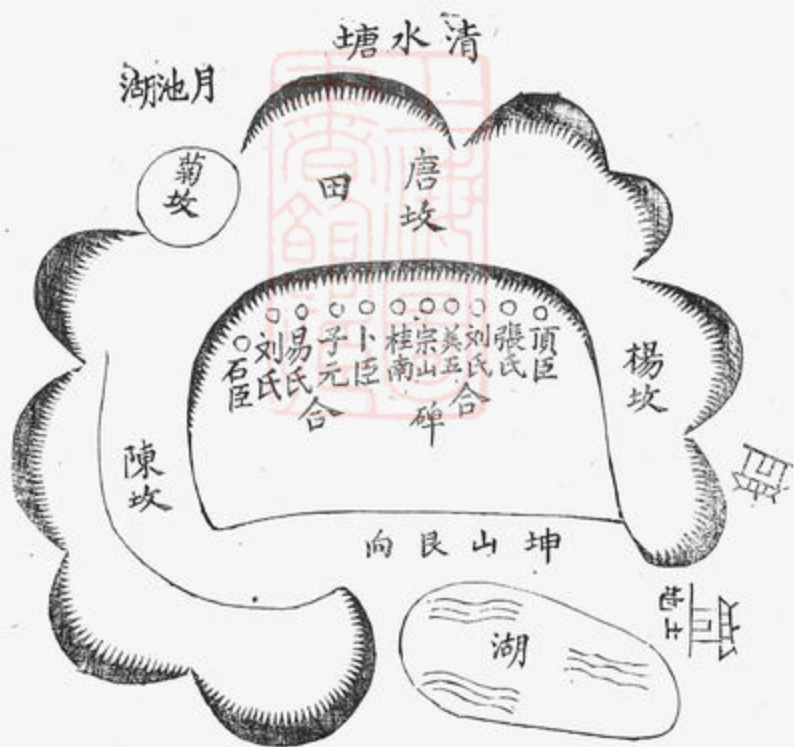 清水塘
月池湖
菊坟
唐坟
田
楊坟
頂臣
張氏
刘氏
英五
宗山
桂南
卜臣
子元
易氏
刘氏
石臣
合
碑
合
陳坟
坤山艮向
湖
土地